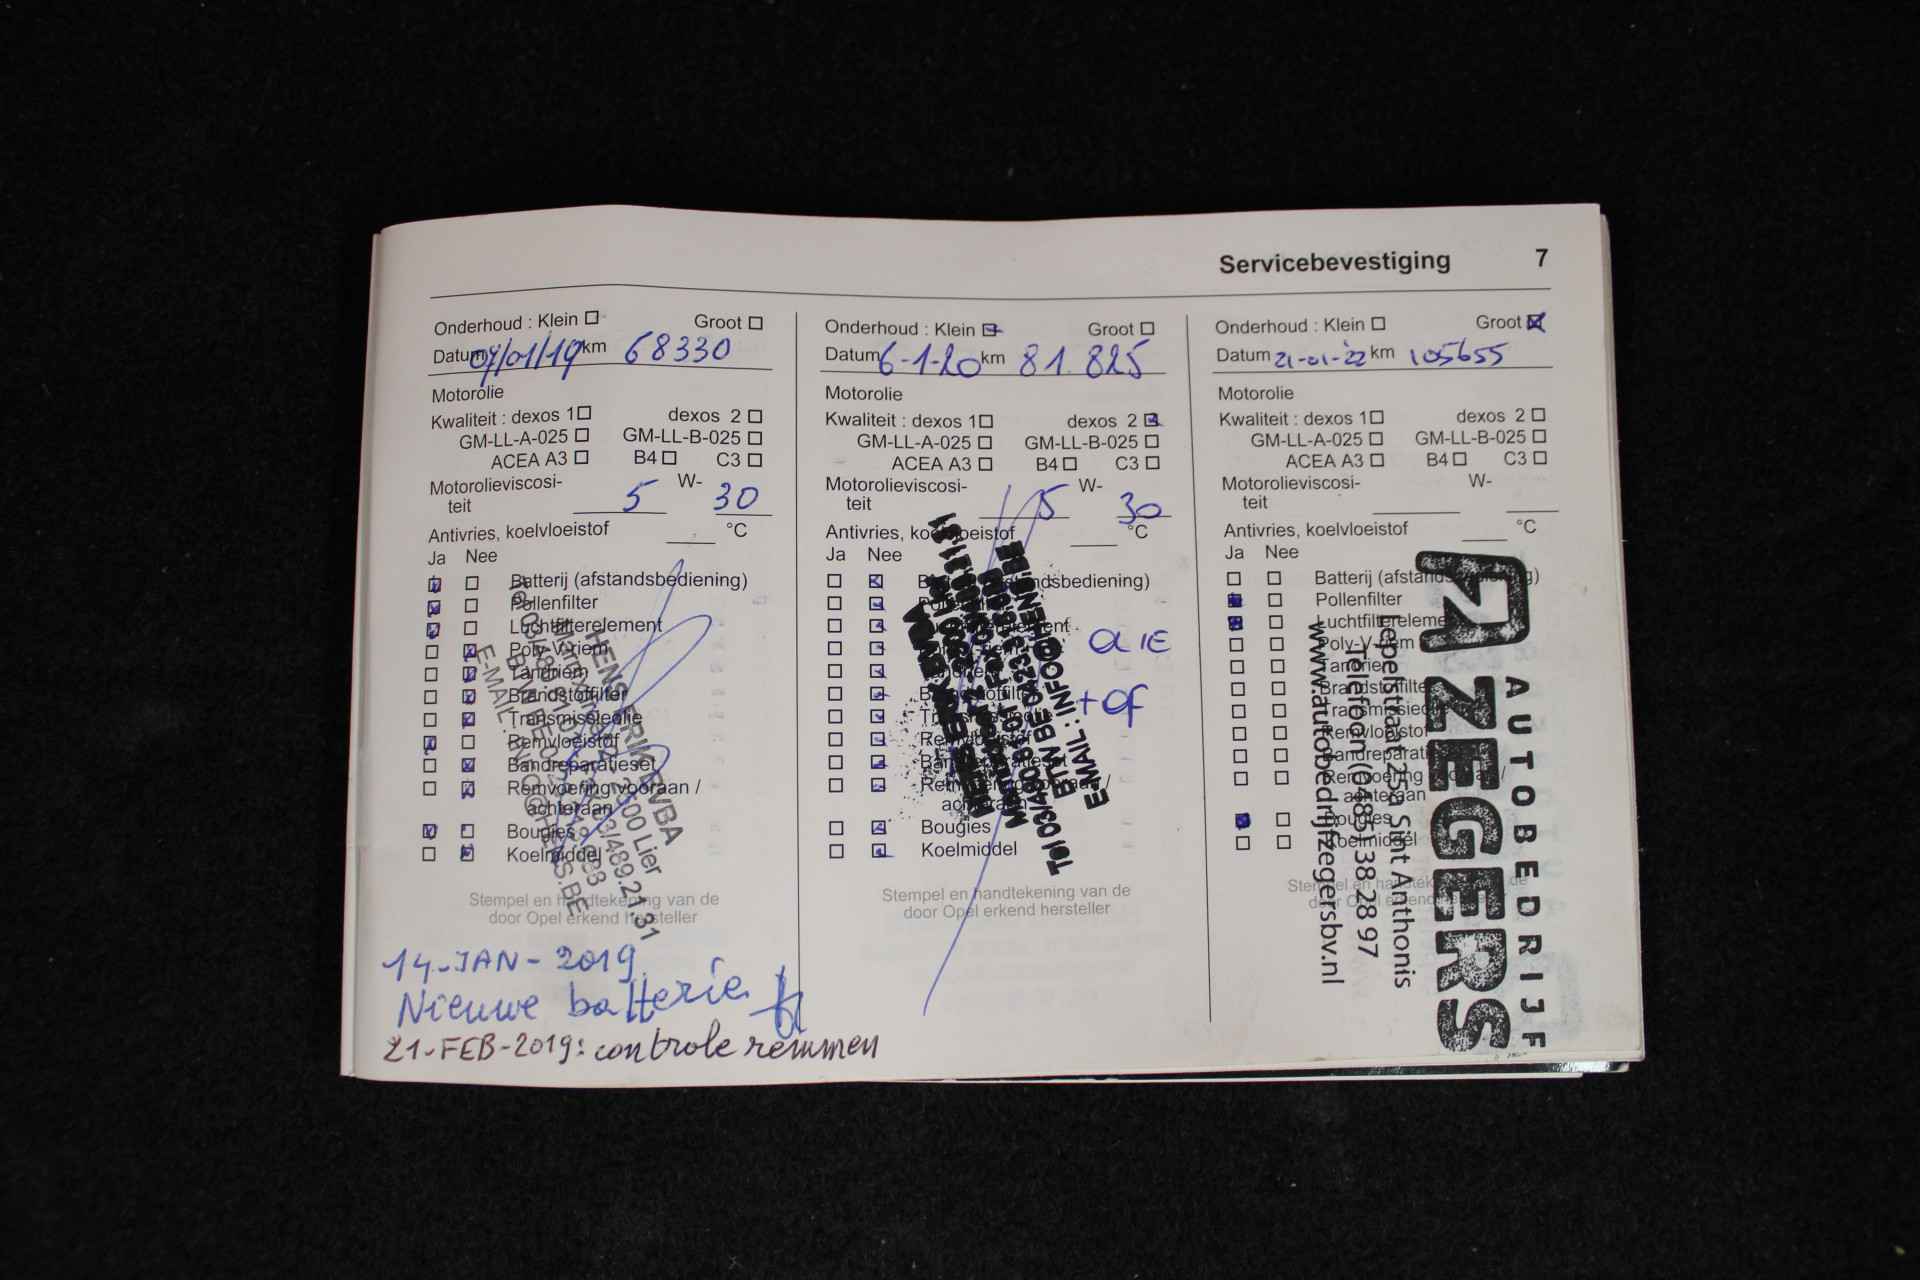 Servicebevestiging 7
Onderhoud : Klein Groot
Datum 07/01/19 km 68330
Motorolie
Kwaliteit : dexos 1 dexos 2
GM-LL-A-025 GM-LL-B-025
ACEA A3 B4 C3
Motorolieviscosi- W-
teit 5 30
Antivries, koelvloeistof °C
Ja Nee
Batterij (afstandsbediening)
Pollenfilter
Luchtfilterelement
Poly-V-riem
Tandriem
Brandstoffilter
Transmissieolie
Remvloeistof
Bandreparatieset
Remvoering vooraan /
achteraan
Bougies
Koelmiddel
Stempel en handtekening van de
door Opel erkend hersteller
2500 Lier
E-MAIL:
14-JAN-2019
Nieuwe batterie
21-FEB-2019: controle remmen
Onderhoud : Klein Groot
Datum 6-1-20 km 81.825
Motorolie
Kwaliteit : dexos 1 dexos 2
GM-LL-A-025 GM-LL-B-025
ACEA A3 B4 C3
Motorolieviscosi- W-
teit 5 30
Antivries, koelvloeistof °C
Ja Nee
Batterij (afstandsbediening)
Brandstoffilter
Remvloeistof
achteraan
Bougies
Koelmiddel
Stempel en handtekening van de
door Opel erkend hersteller
OLIE
+ OF
E-MAIL : INFO@
Onderhoud : Klein Groot
Datum 21-01-22 km 105655
Motorolie
Kwaliteit : dexos 1 dexos 2
GM-LL-A-025 GM-LL-B-025
ACEA A3 B4 C3
Motorolieviscosi- W-
teit
Antivries, koelvloeistof °C
Ja Nee
Batterij (afstandsbediening)
Pollenfilter
Luchtfilterelement
Poly-V-riem
Tandriem
Brandstoffilter
Transmissieolie
Remvloeistof
Bandreparatieset
Remvoering vooraan /
achteraan
Bougies
Koelmiddel
Stempel en handtekening van de
door Opel erkend hersteller
AUTOBEDRIJF
ZEGERS
Lepelstraat 25a Sint Anthonis
Telefoon (0485) 38 28 97
www.autobedrijfzegersbv.nl